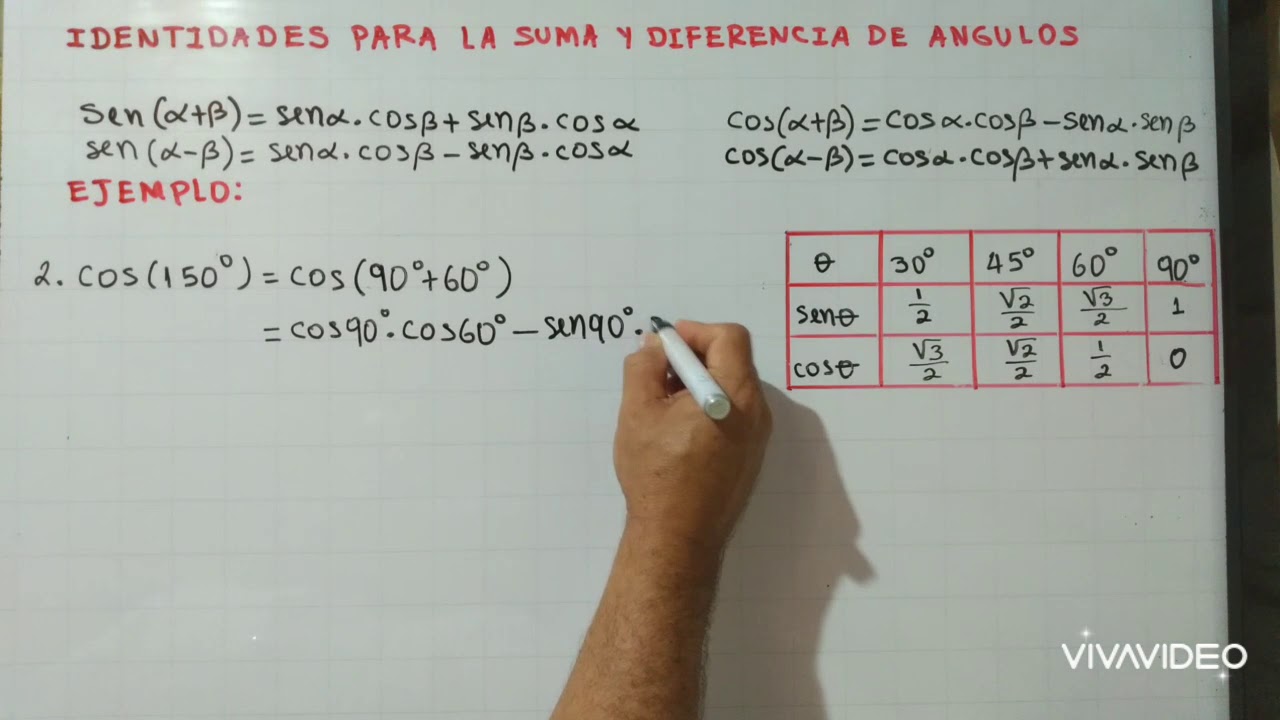 IDENTIDADES PARA LA SUMA Y DIFERENCIA DE ANGULOS
sen(α+β)=senα.cosβ+senβ.cosα
sen(α-β)=senα.cosβ-senβ.cosα
cos(α+β)=cosα.cosβ-senα.senβ
cos(α-β)=cosα.cosβ+senα.senβ
EJEMPLO:
2. cos(150°)=cos(90°+60°)
=cos90°.cos60°-sen90°.
θ 30° 45° 60° 90°
senθ 1/2 √2/2 √3/2 1
cosθ √3/2 √2/2 1/2 0
VIVAVIDEO